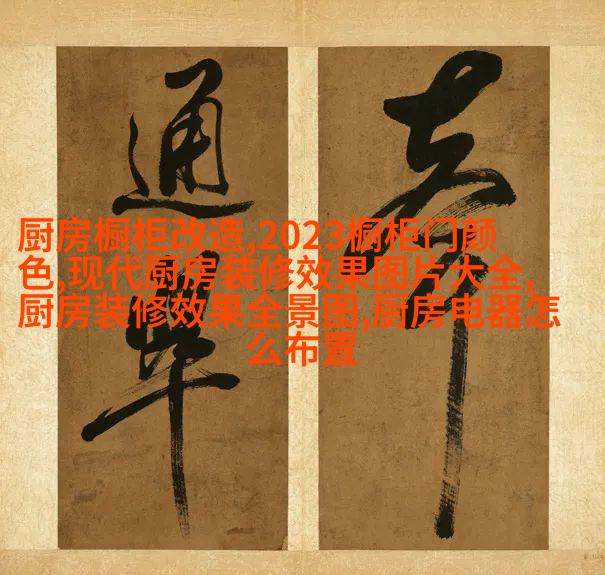 通
厨房橱柜改造,2023橱柜门颜
色,现代厨房装修效果图片大全,
厨房装修效果全景图,厨房电器怎
么布置